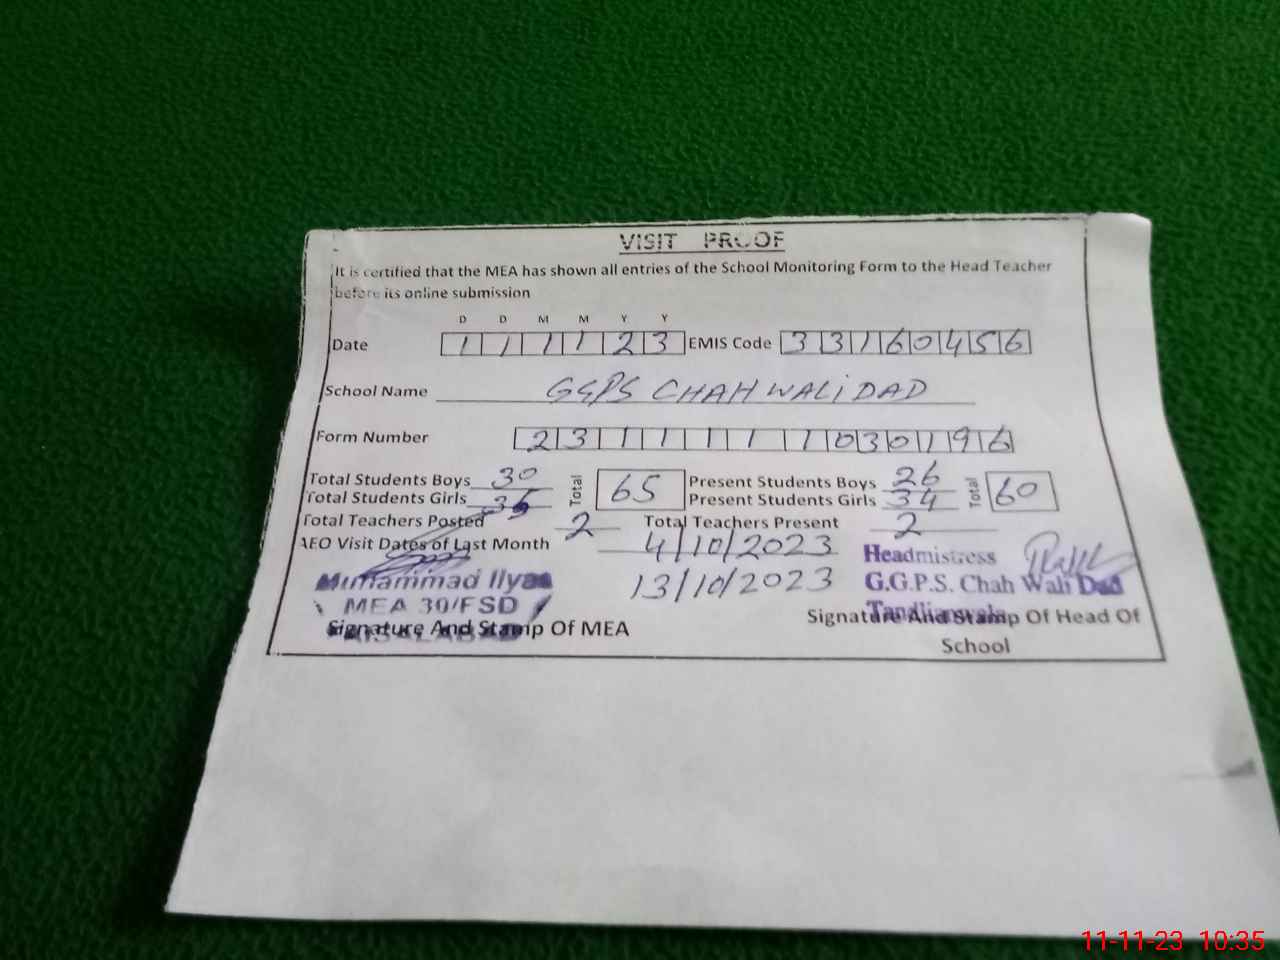 VISIT PROOF
It is certified that the MEA has shown all entries of the School Monitoring Form to the Head Teacher
before its online submission
D D M M Y Y
Date 1 1 1 1 2 3 EMIS Code 3 3 1 6 0 4 5 6
School Name GGPS CHAH WALI DAD
Form Number 2 3 1 1 1 1 1 0 3 0 1 9 6
Total Students Boys 30 Total 65 Present Students Boys 26 Total 60
Total Students Girls 35 Present Students Girls 34
Total Teachers Posted 2 Total Teachers Present 2
AEO Visit Dates of Last Month 4/10/2023
13/10/2023
Muhammad Ilyas
MEA 30/FSD
Signature And Stamp Of MEA
Headmistress
G.G.P.S. Chah Wali Dad
Tandlianwala
Signature And Stamp Of Head Of
School
11-11-23 10:35